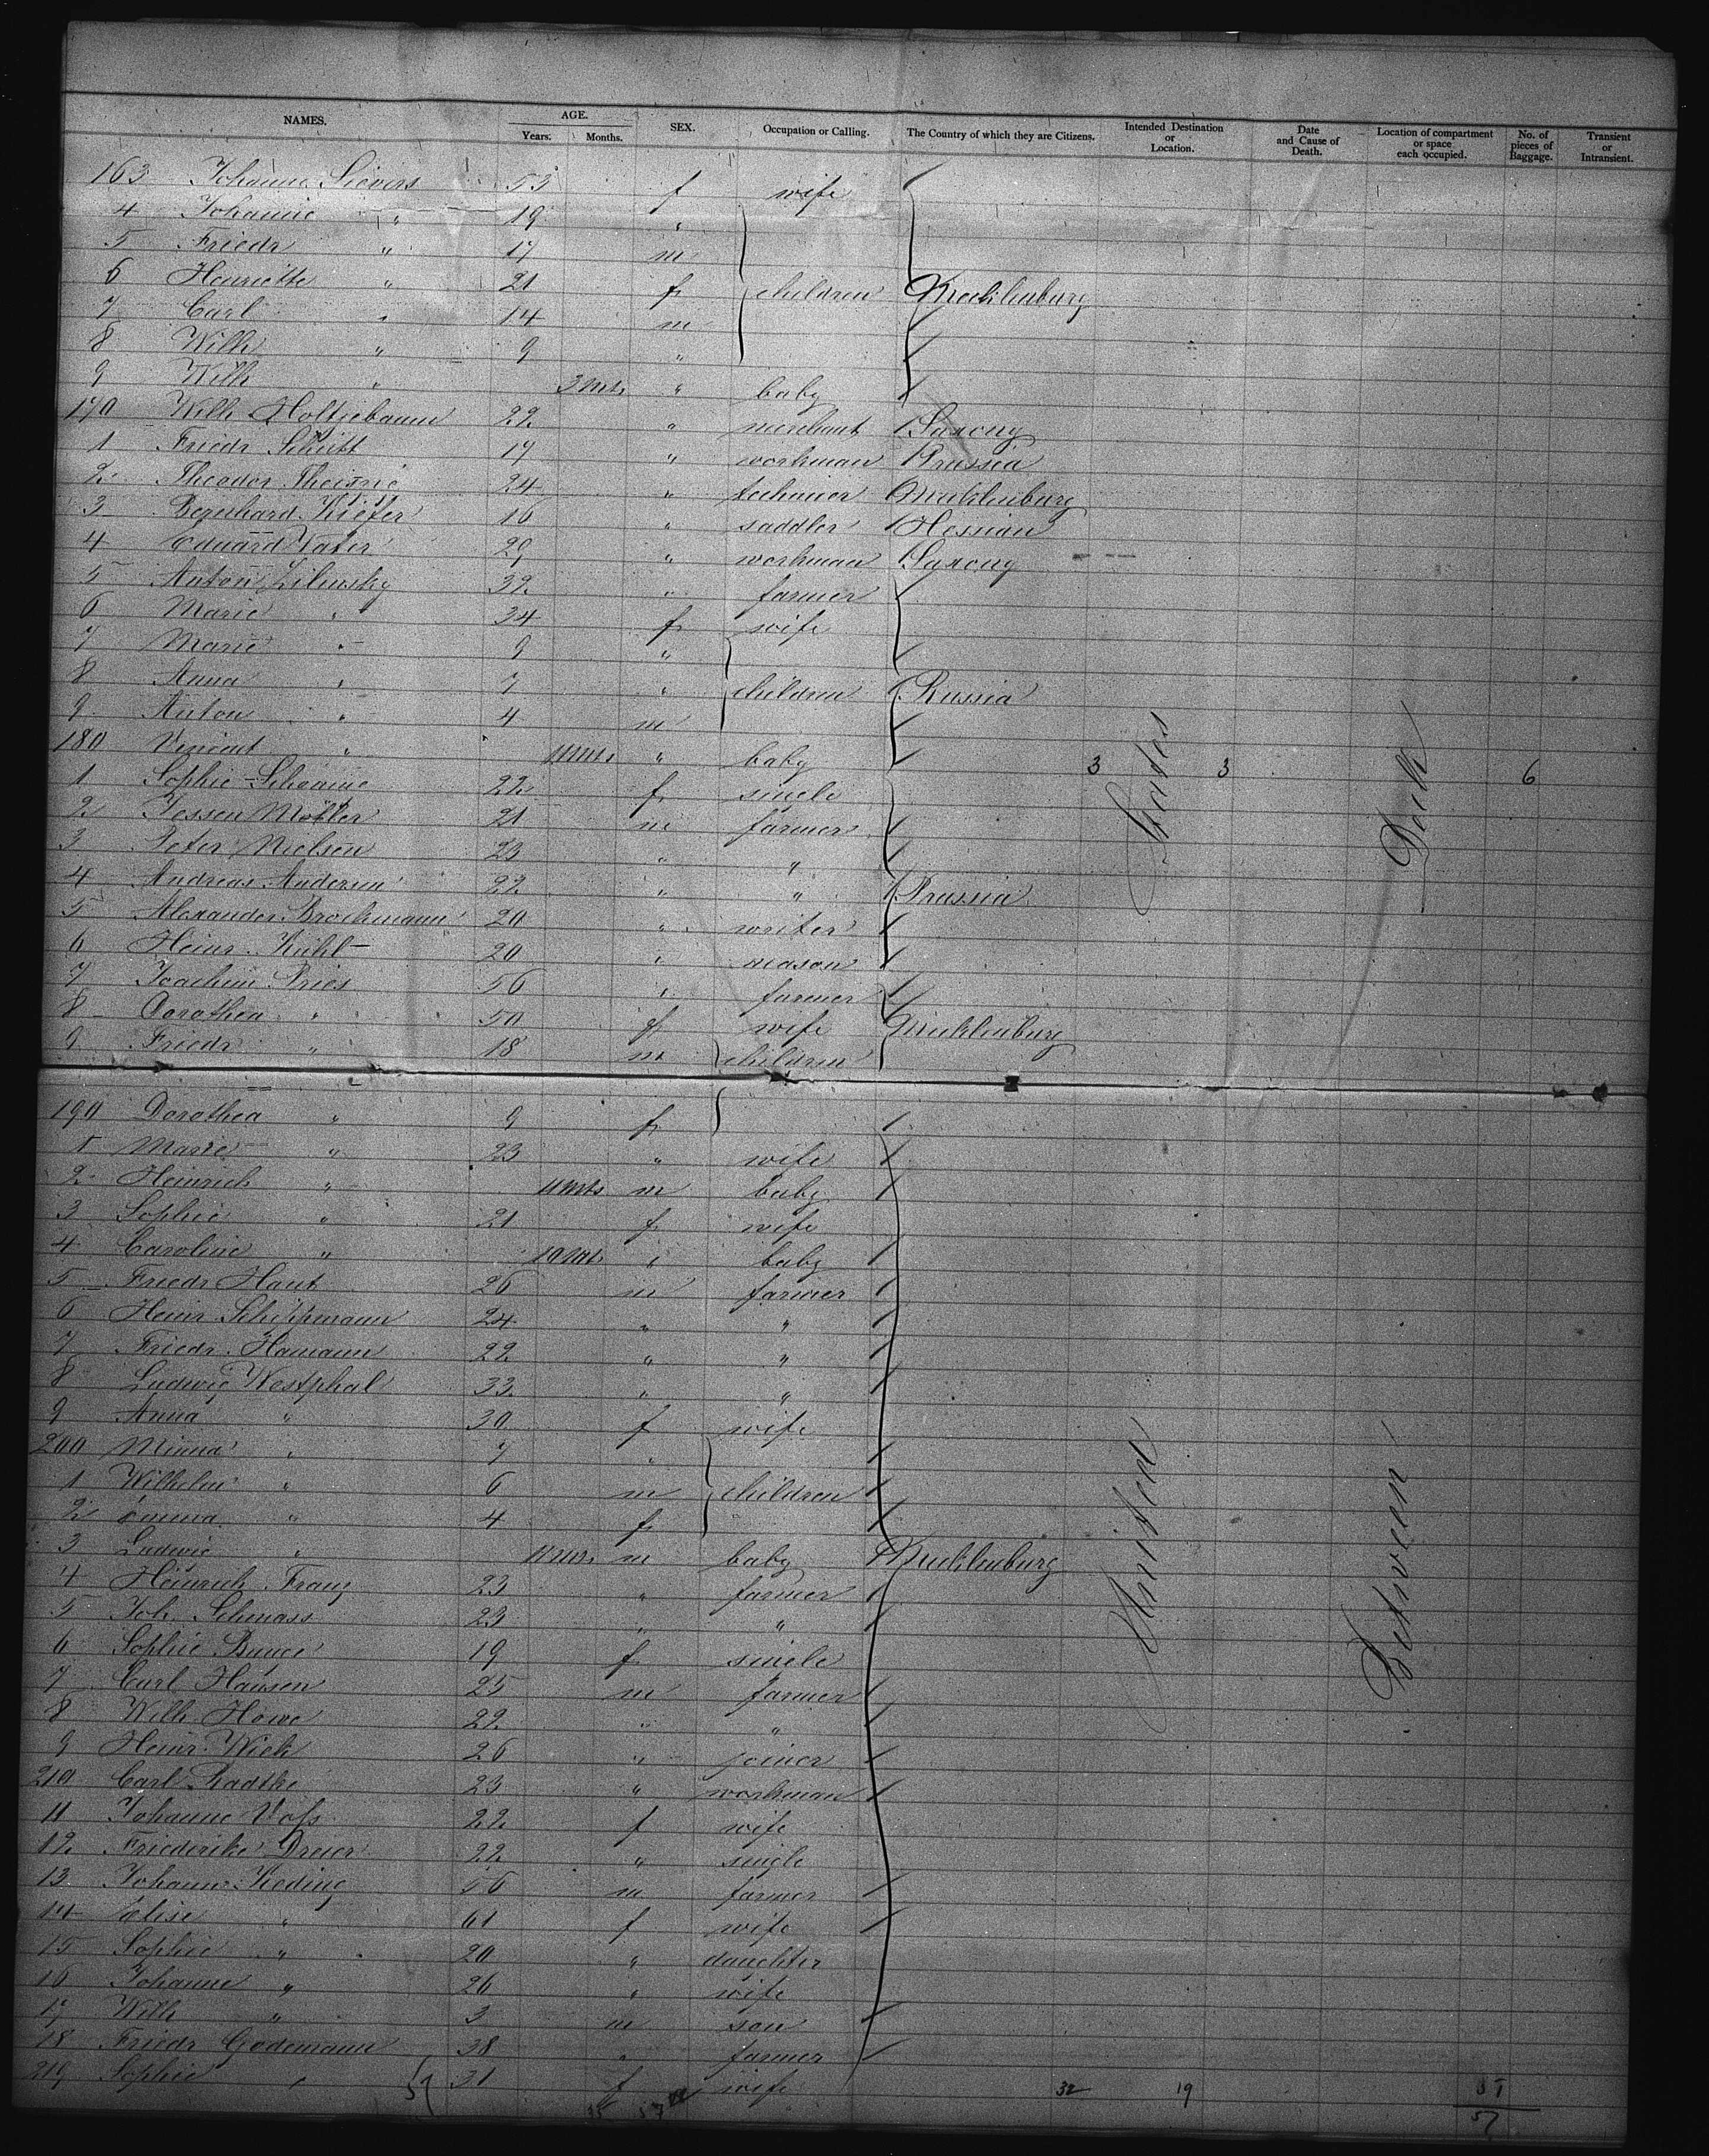 NAMES. AGE. SEX. Occupation or Calling. The Country of which they are Citizens. Intended Destination or Location. Date and Cause of Death. Location of compartment or space each occupied. No. of pieces of Baggage. Transient or Intransient.
Years. Months.
163 Johanne Sievers 53 f wife
4 Johanne " 19 "
5 Friedr " 17 m
6 Henriette " 21 f children Mecklenburg
7 Carl " 14 m
8 Wilh " 9 "
9 Wilh " 3 mts " baby
170 Wilh Holtzebaum 22 " merchant Saxony
1 Friedr Schütt 17 " workman Prussia
2 Theodor 24 " Mecklenburg
3 Bernhard Kiefer 16 " saddler Hessian
4 Eduard Vater 29 " workman Saxony
5 Anton Zilinsky 32 " farmer
6 Marie " 34 f wife
7 Marie " 9 "
8 Anna " 7 " children Russia
9 Anton " 4 m
180 Vincent " 11 mts " baby 3 3 6
1 Sophie 22 f single
2 Jessen Möller 21 m farmer
3 Peter Nielsen 23 " "
4 Andreas Andersen 22 " " Prussia
5 Alexander Brockmann 20 " writer
6 Heinr. Kühl 20 " mason
7 Joachim Pries 56 " farmer
8 Dorothea " 50 f wife Mecklenburg
9 Friedr " 18 m children
190 Dorothea " 9 f
1 Marie " 23 " wife
2 Heinrich " 11 mts m baby
3 Sophie " 21 f wife
4 Caroline " 10 mts " baby
5 Friedr Haut 26 m farmer
6 Heinr. Schippmann 24 " "
7 Friedr. Hamann 22 " "
8 Ludwig Westphal 33 " "
9 Anna " 30 f wife
200 Minna " 7 "
1 Wilhelm " 6 m children
2 Emma " 4 f
3 Ludwig " 11 mts m baby Mecklenburg
4 Heinrich Franz 23 " farmer
5 Joh. Schmass 23 " "
6 Sophie 19 f single
7 Carl Hansen 25 m farmer
8 Wilh. Howe 22 " "
9 Heinr. Wiek 26 " joiner
210 Carl Radtke 23 " workman
11 Johanne Voss 22 f wife
12 Friederike Dreier 22 " single
13 Johann Kieding 56 m farmer
14 Elise " 61 f wife
15 Sophie " 20 " daughter
16 Johanne " 26 " wife
17 Wilh " 3 m son
18 Friedr Godemann 38 " farmer
219 Sophie " 31 f wife 32 19
57 57
United States
Between Deck